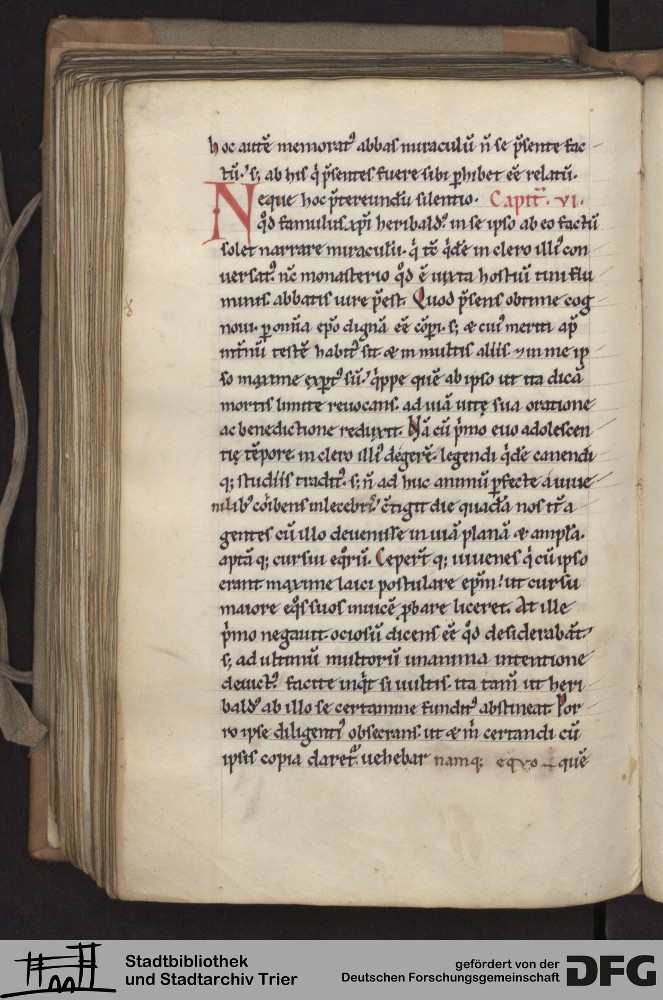 hoc autē memorat᷒ abbas miraculū n̄ se p̄sente fac
tū. s; ab his q̇ p̄sentes fuere sibi ꝑhibet eē relatū.
Neque hoc p̄tereundū silentio. Capitł. vi.
qd̄ famulus xp̄i heribald᷒ in se ipso ab eo factū
solet narrare miraculū. q̇ tc̄ qd̄e in clero illi᷒ con
uersat᷒. nc̄ monasterio qd̄ ē iuxta hostiū tini flu
minis. abbatis iure p̄est. Quod p̄sens obtime cog
noui. ꝑ omnia ep̄o dignā eē cōpi. s; & cui᷒ meriti ap̄
int̄nū testē habit᷒ sit & in multis aliis. & in me ip
so maxime exꝑt᷒ sū. q̇ppe quē ab ipso ut ita dicā
mortis limite reuocans. ad uiā uitę sua oratione
ac benedictione reduxit. Nā cū p̄mo euo adolescen
tię tēpore. in clero illi᷒ degerē. legendi qd̄e canendi
q; studiis tradit᷒. s; n̄ ad huc animū ꝑfecte a iuue
nilib᷒ cohibens inlecebris. c̄tigit die quadā nos it̄ a
gentes cū illo deuenisse in uiā planā & amplā.
aptā q; cursui eq̊rū. Ceper̄t q; iuuenes q̇ cū ipso
erant maxime laici postulare ep̄m. ut cursu
maiore eq̊s suos inuicē ꝓbare liceret. At ille
p̄mo negauit. ociosū dicens eē qd̄ desiderabāt.
s; ad ultimū multorū unanima intentione
deuict᷒. facite inq̇t si uultis. ita tam̄ ut heri
bald᷒ ab illo se certamine fundit᷒ abstineat. Por
ro ipse diligenti᷒ obsecrans. ut & m̄ certandi cū
ipsis copia daret᷒. uehebar namq; equo quē
Stadtbibliothek
und Stadtarchiv Trier
gefördert von der
Deutschen Forschungsgemeinschaft
DFG